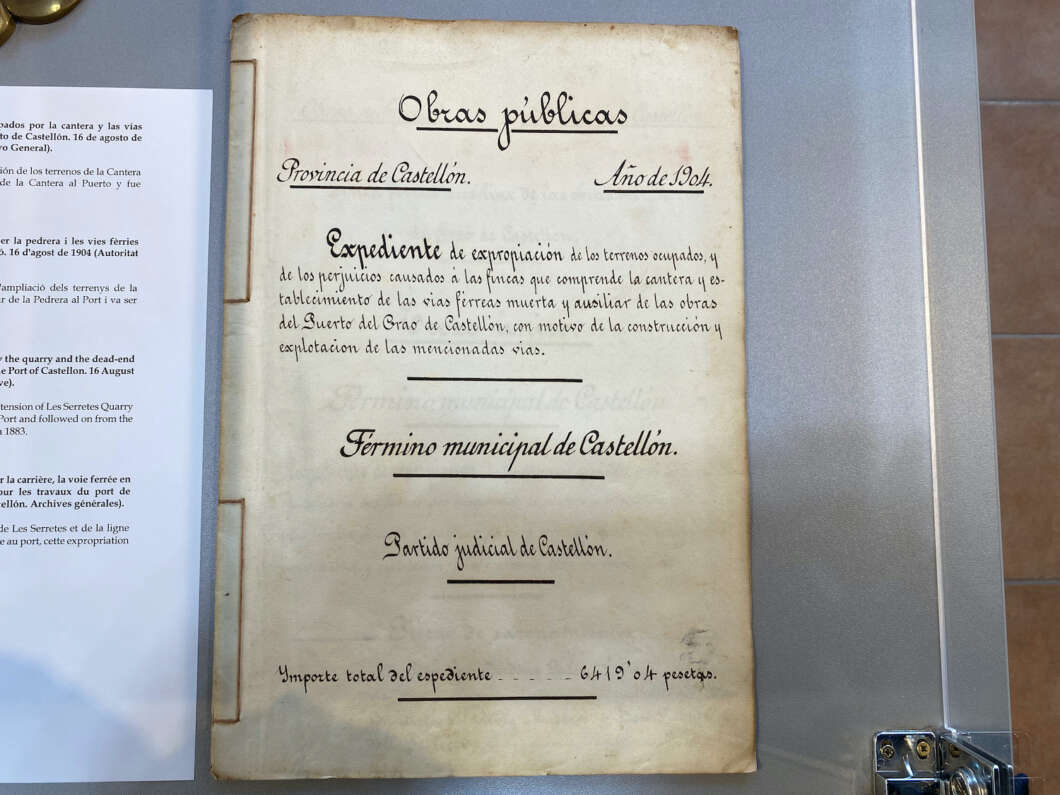 pados por la cantera y las vías
to de Castellón. 16 de agosto de
vo General).
ión de los terrenos de la Cantera
de la Cantera al Puerto y fue
er la pedrera i les vies fèrries
ó. 16 d'agost de 1904 (Autoritat
'ampliació dels terrenys de la
ar de la Pedrera al Port i va ser
y the quarry and the dead-end
e Port of Castellon. 16 August
ve).
tension of Les Serretes Quarry
Port and followed on from the
n 1883.
r la carrière, la voie ferrée en
our les travaux du port de
tellón. Archives générales).
de Les Serretes et de la ligne
e au port, cette expropriation
Obras públicas
Provincia de Castellón. Año de 1904.
Expediente de expropiación de los terrenos ocupados, y
de los perjuicios causados á las fincas que comprende la cantera y es-
tablecimiento de las vias férreas muerta y ausiliar de las obras
del Puerto del Grao de Castellón, con motivo de la construcción y
explotacion de las mencionadas vias.
Término municipal de Castellón.
Partido judicial de Castellón.
Ymporte total del espediente - - - - - 6419'04 pesetas.